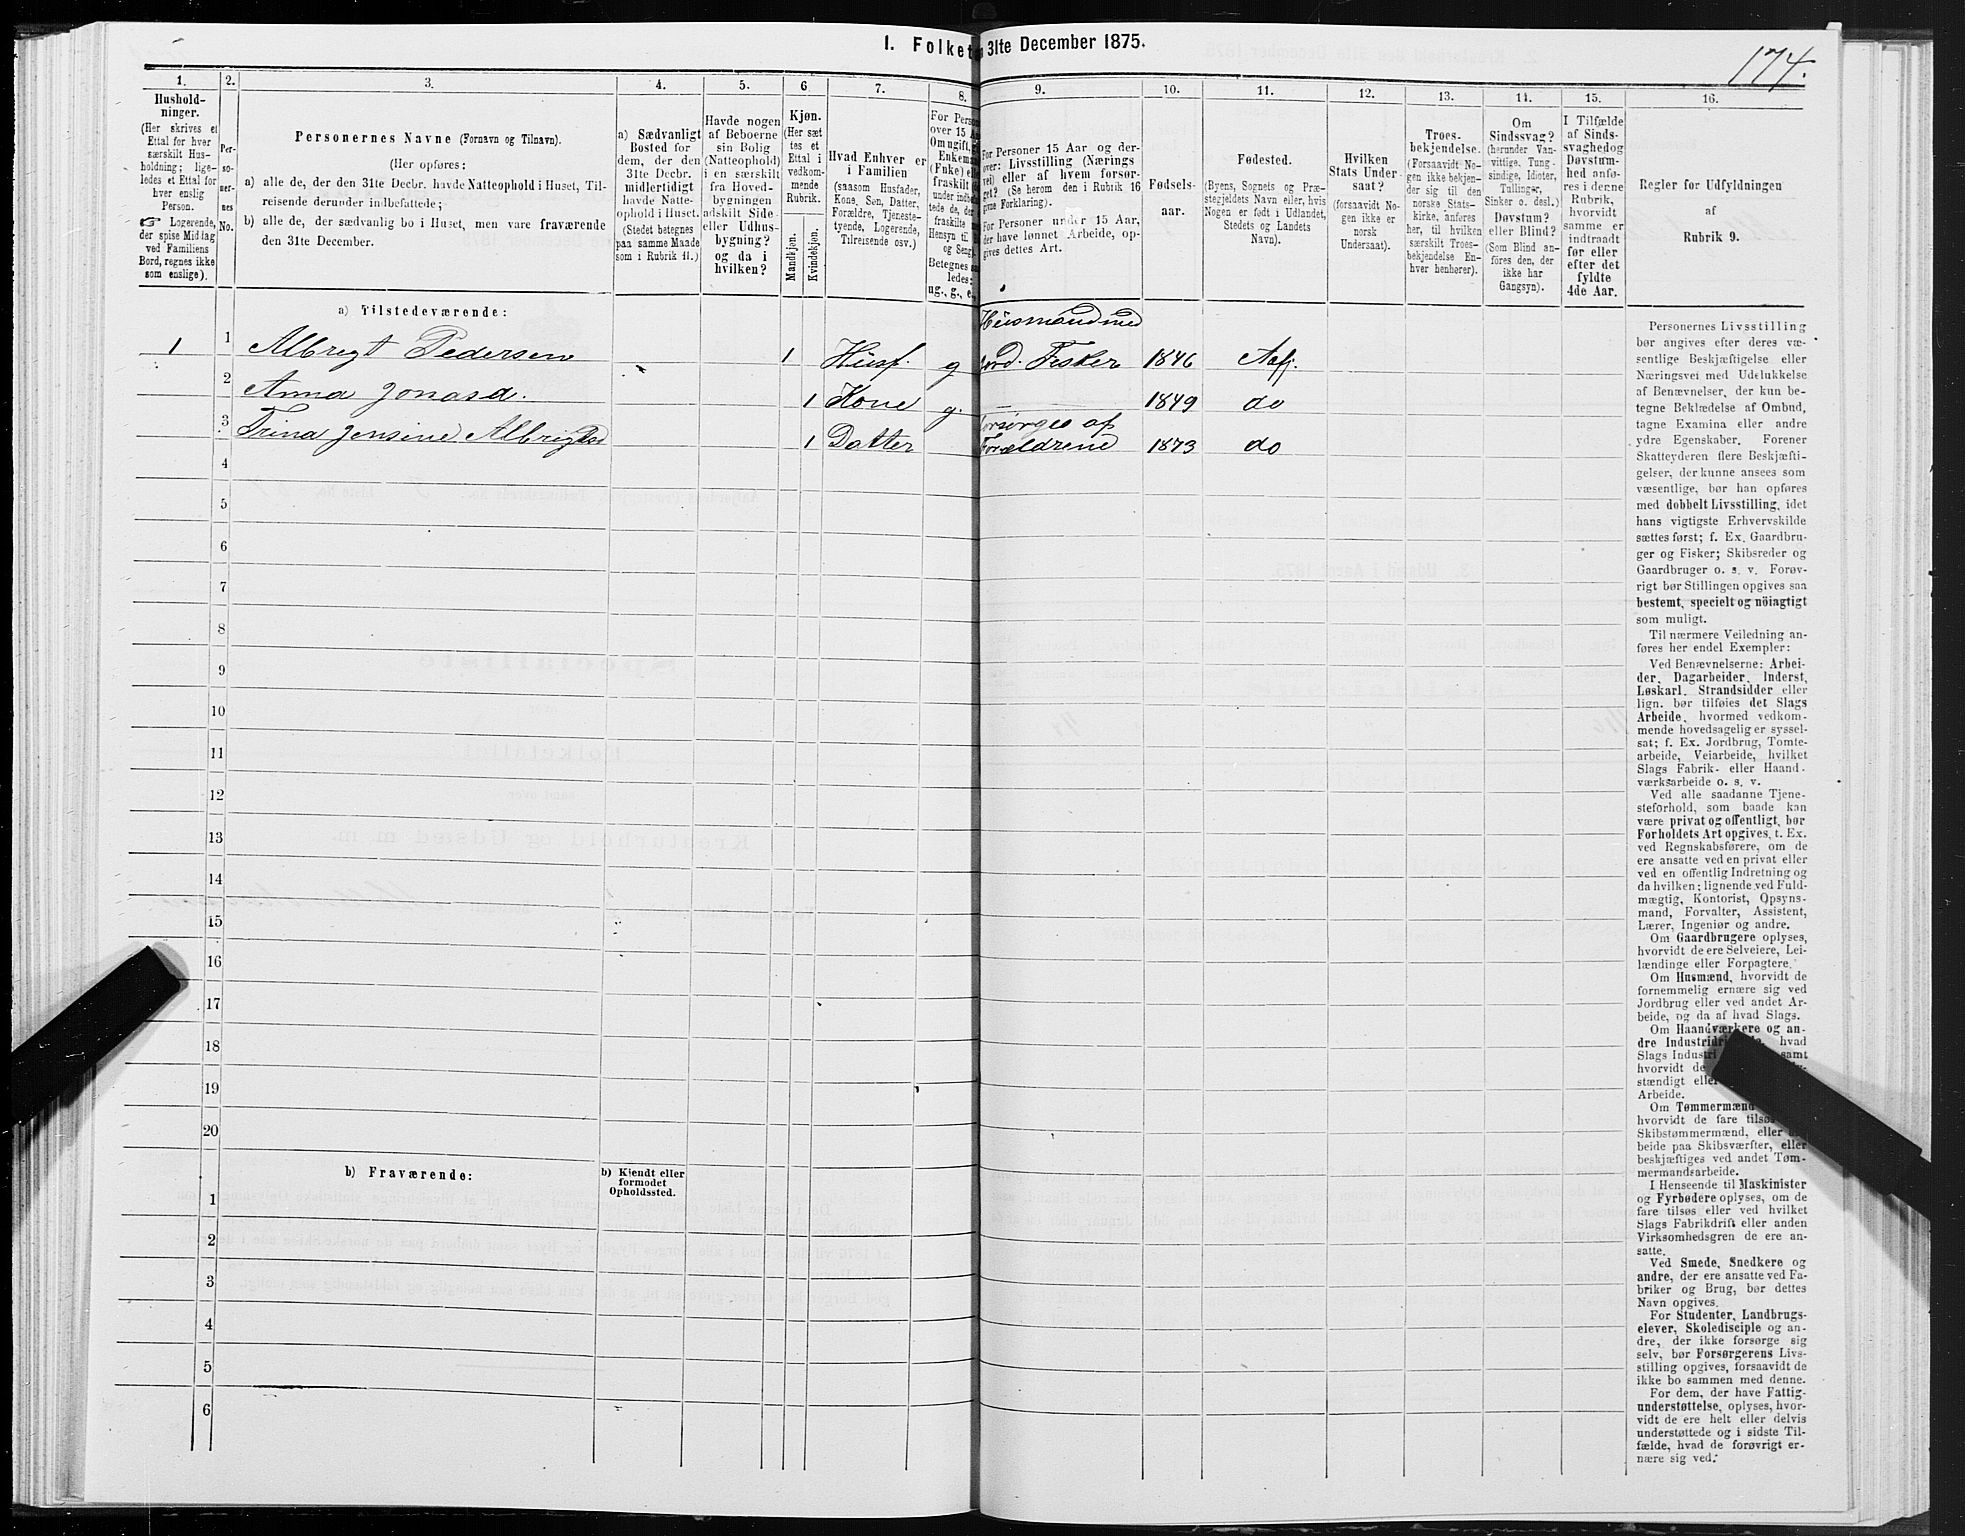 I. Folket
31te December 1875.
174.
1.
2.
3.
4.
5.
6
7.
8.
9.
10.
11.
12.
13.
14.
15.
16.
Hushold-
ninger.
(Her skrives et
Ettal for hver
særskilt Hus-
holdning; lige-
ledes et Ettal for
hver enslig
Person.
☞ Logerende,
der spise Middag
ved Familiens
Bord, regnes ikke
som enslige).
Per-
so-
ner-
nes
No.
Personernes Navne (Fornavn og Tilnavn).
(Her opføres:
a) alle de, der den 31te Decbr. havde Natteophold i Huset, Til-
reisende derunder indbefattede;
b) alle de, der sædvanlig bo i Huset, men vare fraværende
den 31te December.
a) Sædvanligt
Bosted for
dem, der den
31te Decbr.
midlertidigt
havde Natte-
ophold i Huset.
(Stedet betegnes
paa samme Maade
som i Rubrik 11.)
Havde nogen
af Beboerne
sin Bolig
(Natteophold)
i en særskilt
fra Hoved-
bygningen
adskilt Side-
eller Udhus-
bygning?
og da i
hvilken?
Kjøn.
(Her sæt
tes et
Ettal i
vedkom-
mende
Rubrik.
Mandkjøn.
Kvindekjøn.
Hvad Enhver er
i Familien
(saasom Husfader,
Kone, Søn, Datter,
Forældre, Tjeneste-
tyende, Logerende,
Tilreisende osv.)
For Perso
over 15 Aa
Om ugift, g
Enkema
(Fnke) elle
fraskilt
under indbe
tede de, der
fraskilte
Hensyn til
og Seng).
Betegnes saa
ledes:
ug., g., e.,
For Personer 15 Aar og der-
over: Livsstilling (Nærings
vei) eller af hvem forsør-
get? (Se herom den i Rubrik 16
givne Forklaring).
For Personer under 15 Aar,
der have lønnet Arbeide, op-
gives dettes Art.
Fødsels-
aar.
Fødested.
(Byens, Sognets og Præ-
stegjeldets Navn eller, hvis
Nogen er født i Udlandet,
Stedets og Landets
Navn).
Hvilken
Stats Under-
saat?
(forsaavidt No-
gen ikke er
norsk
Undersaat).
Troes-
bekjendelse.
(Forsaavidt No-
gen ikke bekjen-
der sig til den
norske Stats-
kirke, anføres
her, til hvilken
særskilt Troes-
bekjendelse En-
hver henhører).
Om
Sindssvag?
(herunder Van-
vittige, Tung-
sindige, Idioter,
Tullinger,
Sinker o. desl.)
Døvstum?
eller Blind?
(Som Blind an-
føres den, der
ikke har
Gangsyn).
I Tilfælde
af Sinds-
svaghed og
Døvstum-
hed anfø-
res i denne
Rubrik,
hvorvidt
samme er
indtraadt
før eller
efter det
fyldte
4de Aar.
Regler for Udfyldningen
af
Rubrik 9.
a) Tilstedeværende:
Husmand med
1 1 Albregt Pedersen 1 Husf. g Jord. Fisker 1846 Aafj.
2 Anna Jonasd. 1 Kone g. — 1849 do
Forsørges af
3 Trina Jensine Albrigtsd 1 Datter Forældrene 1873 do
4
5
6
7
8
9
10
11
12
13
14
15
16
17
18
19
20
b) Fraværende:
b) Kjendt eller
formodet
Opholdssted.
1
2
3
4
5
6
Personernes Livsstilling
bør angives efter deres væ-
sentlige Beskjæftigelse eller
Næringsvei med Udelukkelse
af Benævnelser, der kun be-
tegne Beklædelse af Ombud,
tagne Examina eller andre
ydre Egenskaber. Forener
Skatteyderen flere Beskjæfti-
gelser, der kunne ansees som
væsentlige, bør han opføres
med dobbelt Livsstilling, idet
hans vigtigste Erhvervskilde
sættes først; f. Ex. Gaardbru-
ger og Fisker; Skibsreder og
Gaardbruger o. s. v. Forøv-
rigt bør Stillingen opgives saa
bestemt, specielt og nöiagtigt
som muligt.
Til nærmere Veiledning an-
føres her endel Exempler:
Ved Benævnelserne: Arbei-
der, Dagarbeider, Inderst,
Løskarl, Strandsidder eller
lign. bør tilføies det Slags
Arbeide, hvormed vedkom-
mende hovedsagelig er syssel-
sat; f. Ex. Jordbrug, Tomte-
arbeide, Veiarbeide, hvilket
Slags Fabrik- eller Haand-
værksarbeide o. s. v.
Ved alle saadanne Tjene-
steforhold, som baade kan
være privat og offentligt, bør
Forholdets Art opgives, t. Ex.
ved Regnskabsførere, om de
ere ansatte ved en privat eller
ved en offentlig Indretning og
da hvilken; lignende ved Fuld-
mægtig, Kontorist, Opsyns-
mand, Forvalter, Assistent,
Lærer, Ingeniør og andre.
Om Gaardbrugere oplyses,
hvorvidt de ere Selveiere, Lei-
lændinge eller Forpagtere.
Om Husmænd, hvorvidt de
fornemmelig ernære sig ved
Jordbrug eller ved andet Ar-
beide, og da af hvad Slags.
Om Haandværkere og an-
dre Industridri hvad
Slags Industri samt
hvorvidt de
stændigt elle
Arbeide.
Om Tømmermænd
hvorvidt de fare tilsøs
Skibstømmermænd, eller
beide paa Skibsværfter, eller
beskjæftiges ved andet Tøm-
mermandsarbeide.
I Henseende til Maskinister
og Fyrbødere oplyses, om de
fare tilsøs eller ved hvilket
Slags Fabrikdrift eller anden
Virksomhedsgren de ere an-
satte.
Ved Smede, Snedkere og
andre, der ere ansatte ved Fa-
briker og Brug, bør dettes
Navn opgives.
For Studenter, Landbrugs-
elever, Skoledisciple og an-
dre, der ikke forsørge sig
selv, bør Forsørgerens Livs-
stilling opgives, forsaavidt de
ikke bo sammen med denne.
For dem, der have Fattig-
understøttelse, oplyses, hvor-
vidt de ere helt eller delvis
understøttede og i sidste Til-
fælde, hvad de forøvrigt er-
nære sig ved.